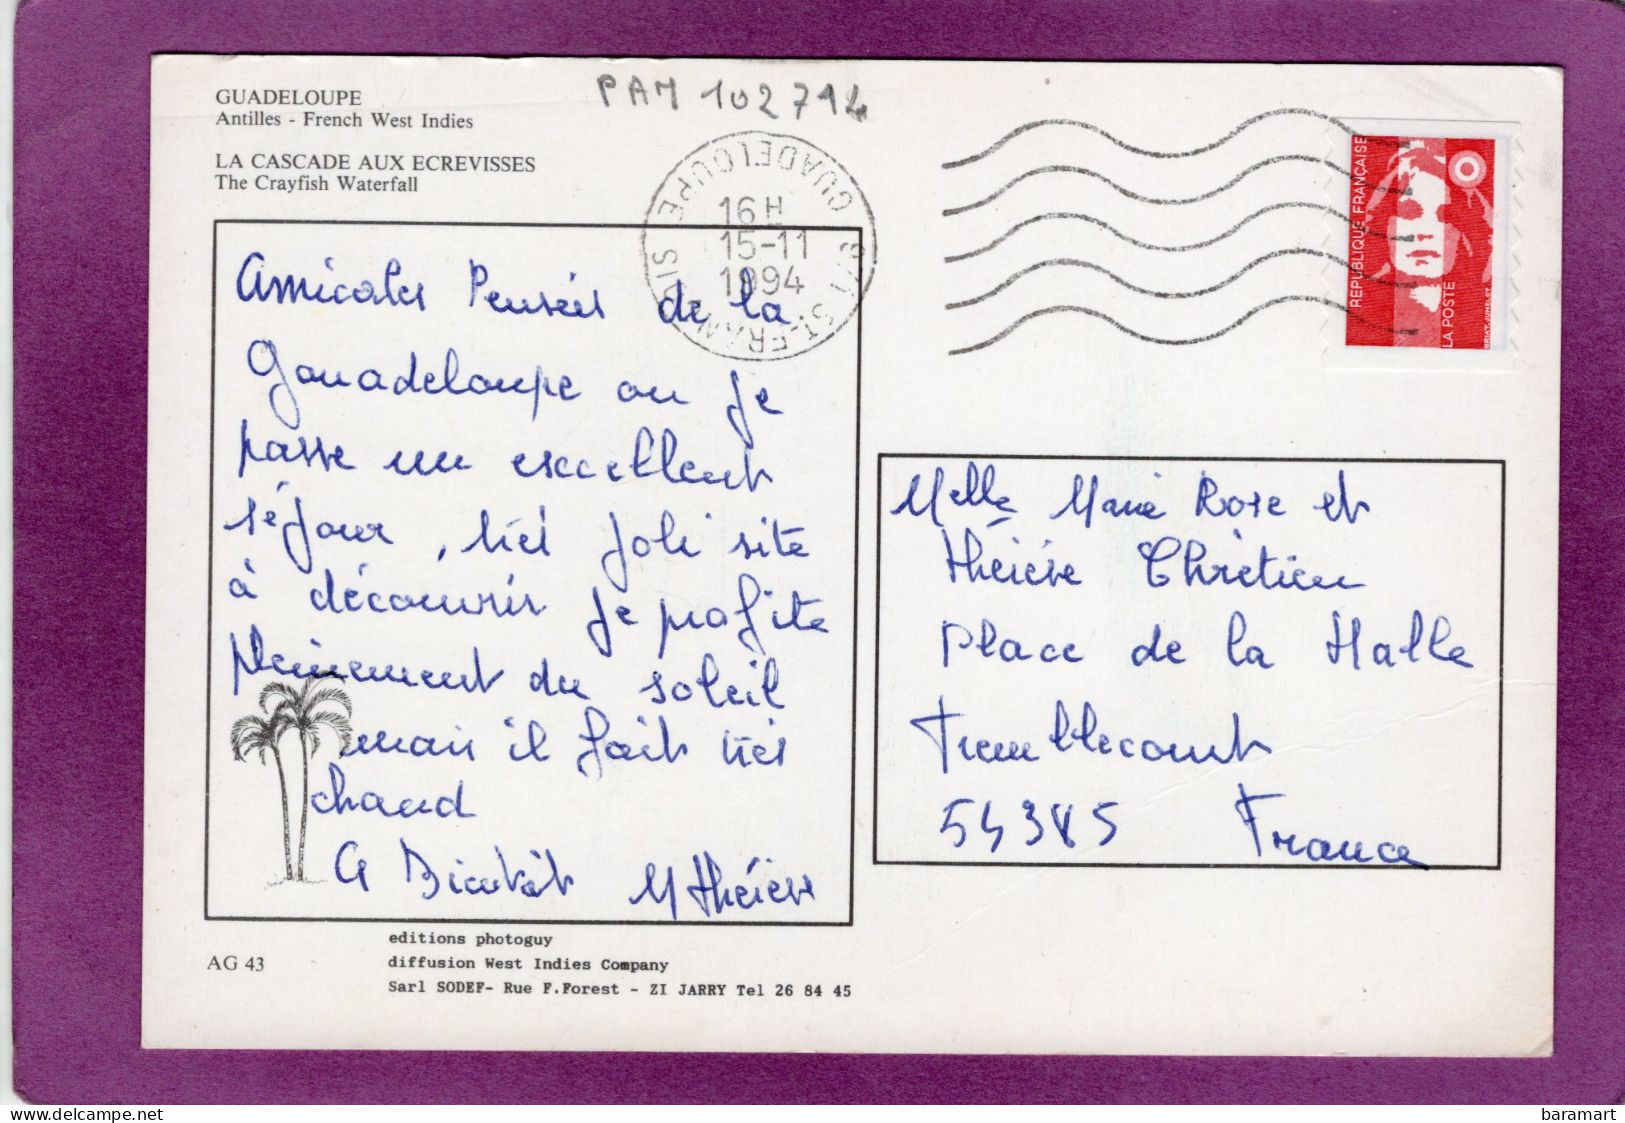 PAM 102714
GUADELOUPE
Antilles - French West Indies
LA CASCADE AUX ECREVISSES
The Crayfish Waterfall
GUADELOUPE
16 H
15-11
1994
ST. FRAN
REPUBLIQUE FRANÇAISE
LA POSTE
Amicales Pensées de la
Gouadeloupe ou je
passe un exccellent
séjour, très joli site
à découvrir je profite
pleinement du soleil
mais il fait très
chaud
A Bientôt M Thérèse
Melle Marie Rose et
thérèse Chrétien
Place de la Halle
Tremblecourt
54385 France
editions photoguy
AG 43
diffusion West Indies Company
Sarl SODEF- Rue F.Forest - ZI JARRY Tel 26 84 45
www.delcampe.net
baramart